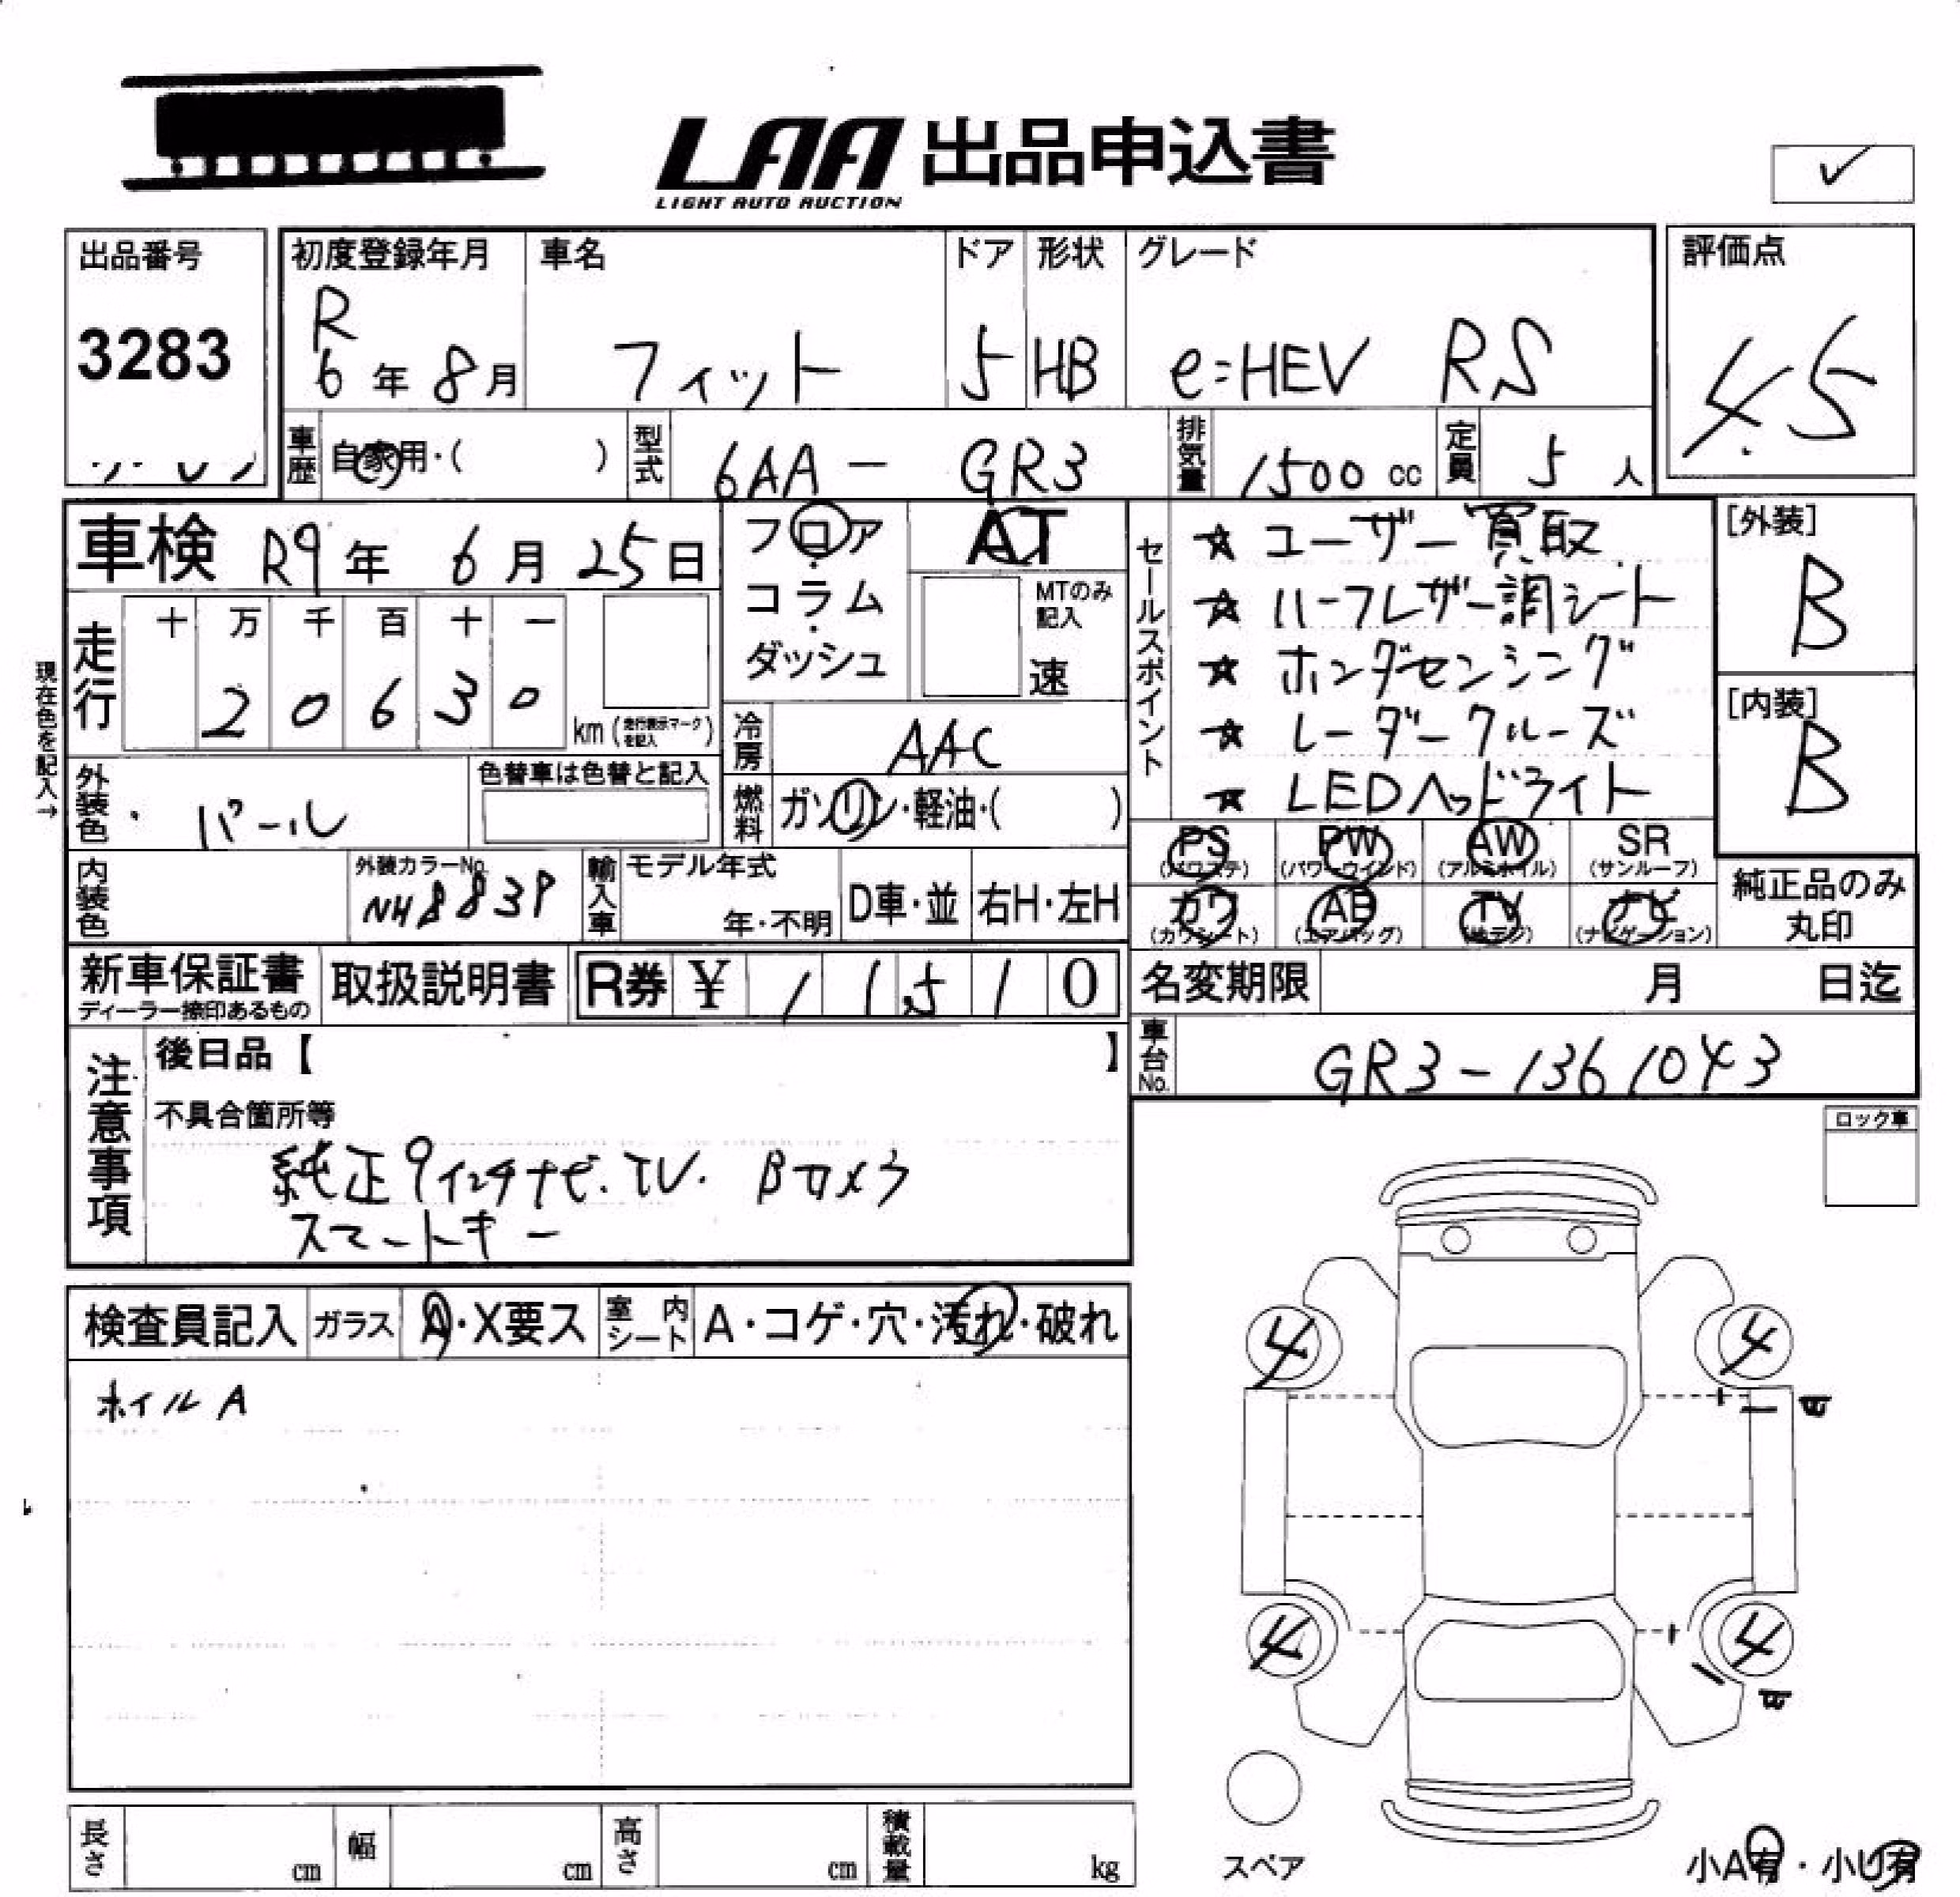 LAA 出品申込書
LIGHT AUTO AUCTION
✓
出品番号
3283
初度登録年月
R
6年8月
車名
フィット
ドア
5
形状
HB
グレード
e:HEV RS
評価点
4.5
車歴
自家用・( )
型式
6AA - GR3
排気量
1500 cc
定員
5 人
車検 R9年 6月 25日
フロア・コラム・ダッシュ
AT
MTのみ記入
速
セールスポイント
☆ ユーザー買取
☆ ハーフレザー調シート
☆ ホンダセンシング
☆ レーダークルーズ
☆ LEDヘッドライト
[外装]
B
[内装]
B
現在色を記入→
走行
十 万 千 百 十 一
2 0 6 3 0
km (走行表示マークを記入)
冷房
AAC
燃料
ガソリン・軽油・( )
外装色
パール
色替車は色替と記入
内装色
外装カラーNo.
NH883P
輸入車
モデル年式
年・不明
D車・並
右H・左H
PS (パワステ)
PW (パワーウインド)
AW (アルミホイル)
SR (サンルーフ)
カワ (カワシート)
AB (エアバッグ)
TV (地デジ)
ナビ (ナビゲーション)
純正品のみ
丸印
新車保証書
ディーラー捺印あるもの
取扱説明書
R券 ¥ 1 1 5 1 0
名変期限 月 日迄
車台No.
GR3-1361043
注意事項
後日品【 】
不具合箇所等
純正9インチナビ.TV. Bカメラ
スマートキー
ロック車
検査員記入
ガラス
A・X要ス
室内シート
A・コゲ・穴・汚れ・破れ
ホイルA
4
4
4
4
スペア
長さ cm
幅 cm
高さ cm
積載量 kg
小A有・小U有